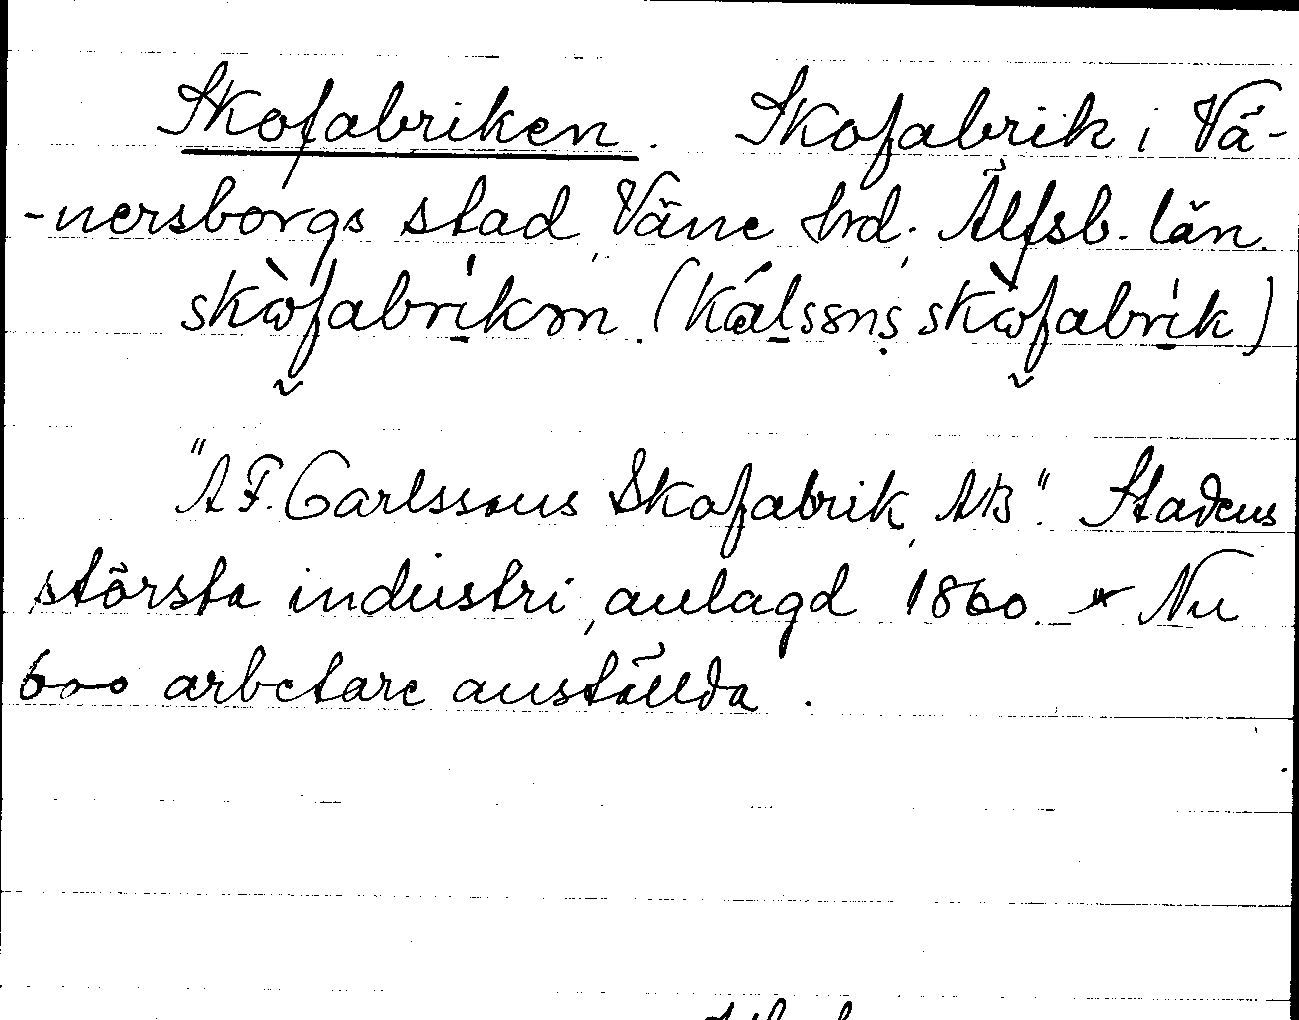 Skofabriken. Skofabrik i Vä-
-nersborgs stad, Väne hrd, Älfsb. län.
skὼfabrikən. (Kálssns skὼfabrik)
"A F. Carlssons Skofabrik, AB". Stadens
största industri, anlagd 1860. Nu
600 arbetare anställda.